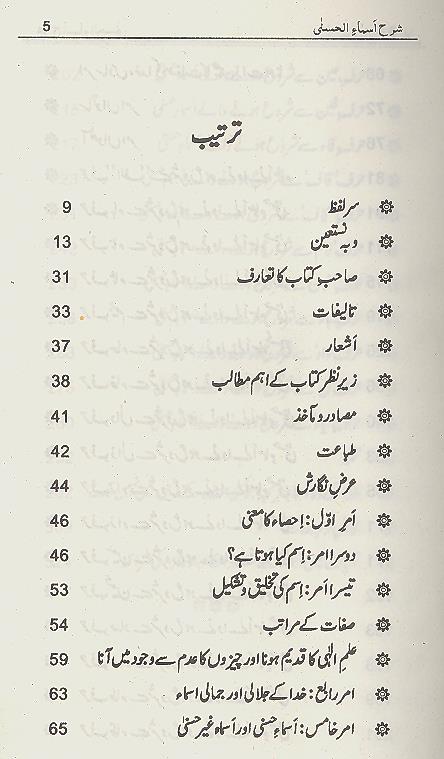 شرح اَسماءِ الحسنٰی 5
ترتیب
سرلفظ 9
وبہٖ نستعین 13
صاحبِ کتاب کا تعارف 31
تالیفات 33
اَشعار 37
زیرِ نظر کتاب کے اہم مطالب 38
مصادر و مآخذ 41
طباعت 42
عرضِ نگارش 44
اَمرِ اوّل: اِحصاء کا معنی 46
دوسرا امر: اِسم کیا ہوتا ہے؟ 46
تیسرا امر: اِسم کی تخلیق و تشکیل 53
صفات کے مراتب 54
علمِ الٰہی کا قدیم ہونا اور چیزوں کا عدم سے وجود میں آنا 59
امرِ رابع: خدا کے جلالی اور جمالی اسماء 63
امرِ خامس: اَسماءِ حسنٰی اور اَسماءِ غیر حسنٰی 65